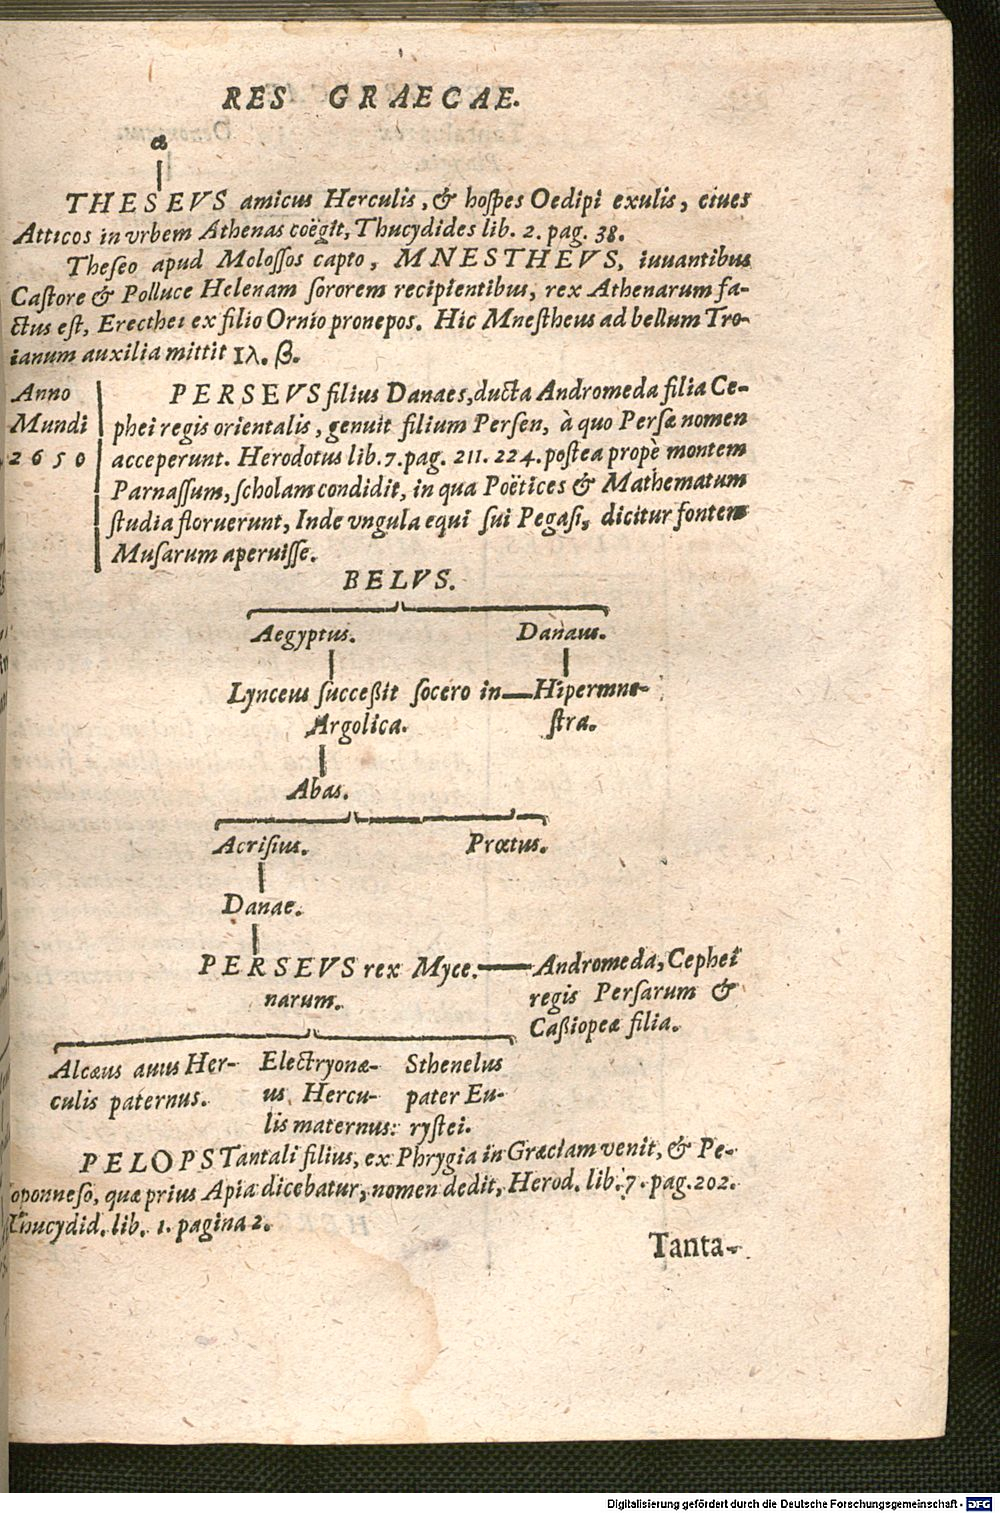 RES GRAECAE.
a
THESEVS amicus Herculis, & hospes Oedipi exulis, ciues
Atticos in vrbem Athenas coëgit, Thucydides lib. 2. pag. 38.
Theseo apud Molossos capto, MNESTHEVS, iuuantibus
Castore & Polluce Helenam sororem recipientibus, rex Athenarum fa-
ctus est, Erecthei ex filio Ornio pronepos. Hic Mnestheus ad bellum Tro-
ianum auxilia mittit ιλ. β.
Anno
Mundi
2650
PERSEVS filius Danaes, ducta Andromeda filia Ce-
phei regis orientalis, genuit filium Persen, à quo Persæ nomen
acceperunt. Herodotus lib. 7. pag. 211. 224. postea propè montem
Parnassum, scholam condidit, in qua Poëtices & Mathematum
studia floruerunt, Inde vngula equi sui Pegasi, dicitur fontem
Musarum aperuisse.
BELVS.
Aegyptus. Danaus.
Lynceus successit socero in Hipermne-
Argolica. stra.
Abas.
Acrisius. Prœtus.
Danae.
PERSEVS rex Myce. Andromeda, Cephei
narum. regis Persarum &
Cassiopeæ filia.
Alcæus auus Her- Electryon æ- Sthenelus
culis paternus. us Hercu- pater Eu-
lis maternus: rystei.
PELOPS Tantali filius, ex Phrygia in Græciam venit, & Pe-
oponneso, quæ prius Apia dicebatur, nomen dedit, Herod. lib. 7. pag. 202.
Thucydid. lib. 1. pagina 2.
Tanta-
Digitalisierung gefördert durch die Deutsche Forschungsgemeinschaft - DFG